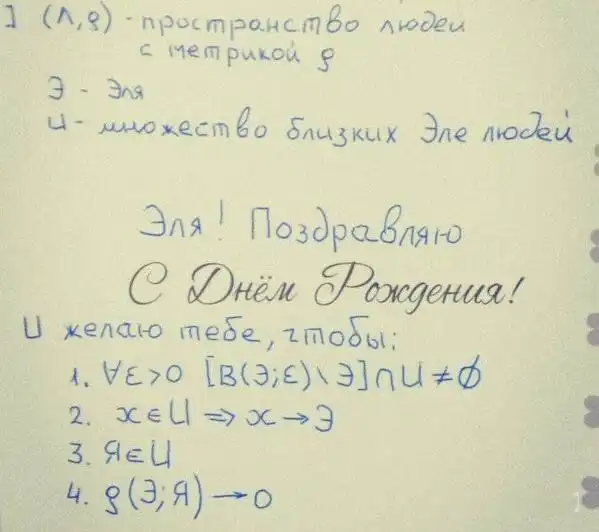 ] (Λ,ρ) - пространство людей
с метрикой ρ
Э - Эля
U - множество близких Эле людей
Эля! Поздравляю
С Днём Рождения!
И желаю тебе, чтобы:
1. ∀ε>0 [B(Э;ε)\Э]∩U≠∅
2. x∈U ⇒ x→Э
3. Я∈U
4. ρ(Э;Я)→0